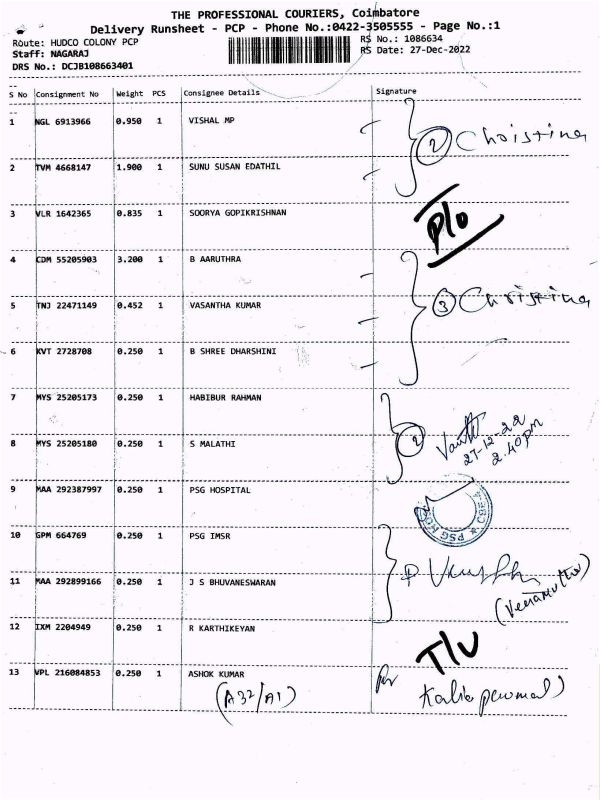 THE PROFESSIONAL COURIERS, Coimbatore
Delivery Runsheet - PCP - Phone No.:0422-3505555 - Page No.:1
Route: HUDCO COLONY PCP
RS No.: 1086634
Staff: NAGARAJ
RS Date: 27-Dec-2022
DRS No.: DCJB108663401
S No Consignment No Weight PCS Consignee Details Signature
1 NGL 6913966 0.950 1 VISHAL MP
2 Christina
2 TVM 4668147 1.900 1 SUNU SUSAN EDATHIL
3 VLR 1642365 0.835 1 SOORYA GOPIKRISHNAN
P/o
4 CDM 55205903 3.200 1 B AARUTHRA
5 TNJ 22471149 0.452 1 VASANTHA KUMAR
3 Christina
6 KVT 2728708 0.250 1 B SHREE DHARSHINI
7 MYS 25205173 0.250 1 HABIBUR RAHMAN
8 MYS 25205180 0.250 1 S MALATHI
2
27-12-22
2.40pm
9 MAA 292387997 0.250 1 PSG HOSPITAL
PSG
10 GPM 664769 0.250 1 PSG IMSR
11 MAA 292899166 0.250 1 J S BHUVANESWARAN
12 IXM 2204949 0.250 1 R KARTHIKEYAN
T/U
13 VPL 216084853 0.250 1 ASHOK KUMAR
(A32/A1)